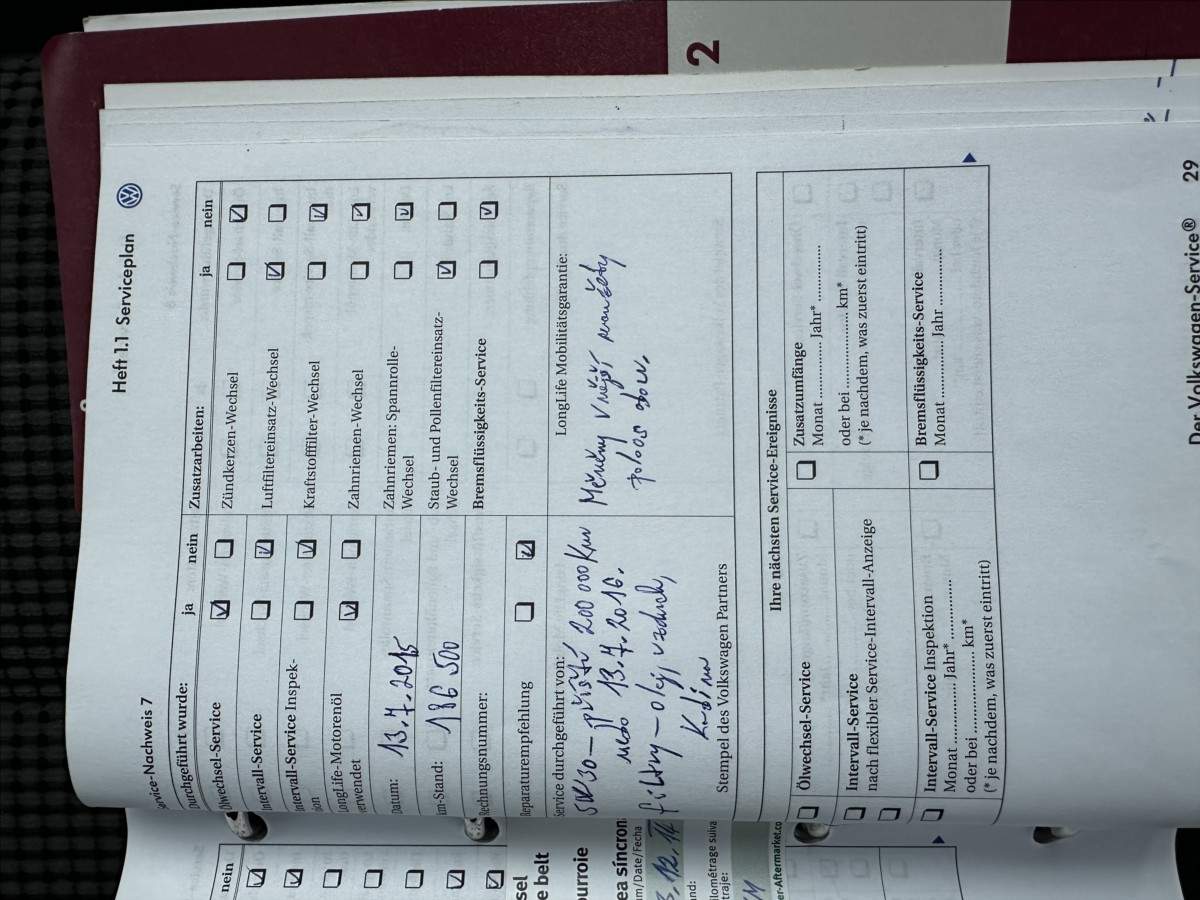 2
Heft 1.1 Serviceplan
Service-Nachweis 7
Durchgeführt wurde: ja nein
Ölwechsel-Service
Intervall-Service
Intervall-Service Inspek-
tion
LongLife-Motorenöl
verwendet
Datum: 13.7.2015
km-Stand: 186 500
Rechnungsnummer:
Reparaturempfehlung
Zusatzarbeiten: ja nein
Zündkerzen-Wechsel
Luftfiltereinsatz-Wechsel
Kraftstofffilter-Wechsel
Zahnriemen-Wechsel
Zahnriemen: Spannrolle-
Wechsel
Staub- und Pollenfiltereinsatz-
Wechsel
Bremsflüssigkeits-Service
Service durchgeführt von:
5W/30 – příště 200 000 Km
nebo 13.7.2016.
filtry – olej, vzduch,
Kabinu
Stempel des Volkswagen Partners
LongLife Mobilitätsgarantie:
Měněny vnější manžety
poloos obou.
Ihre nächsten Service-Ereignisse
Ölwechsel-Service
Intervall-Service
nach flexibler Service-Intervall-Anzeige
Intervall-Service Inspektion
Monat ............ Jahr* ..................
oder bei .................... km*
(* je nachdem, was zuerst eintritt)
Zusatzumfänge
Monat ............ Jahr* ..................
oder bei .................... km*
(* je nachdem, was zuerst eintritt)
Bremsflüssigkeits-Service
Monat ............ Jahr ..................
Der Volkswagen-Service® 29
nein
sel
e belt
ourroie
ea síncron
um/Date/Fecha
3.12.14
and:
kilométrage suiva
traje:
KM
er-Aftermarket.co